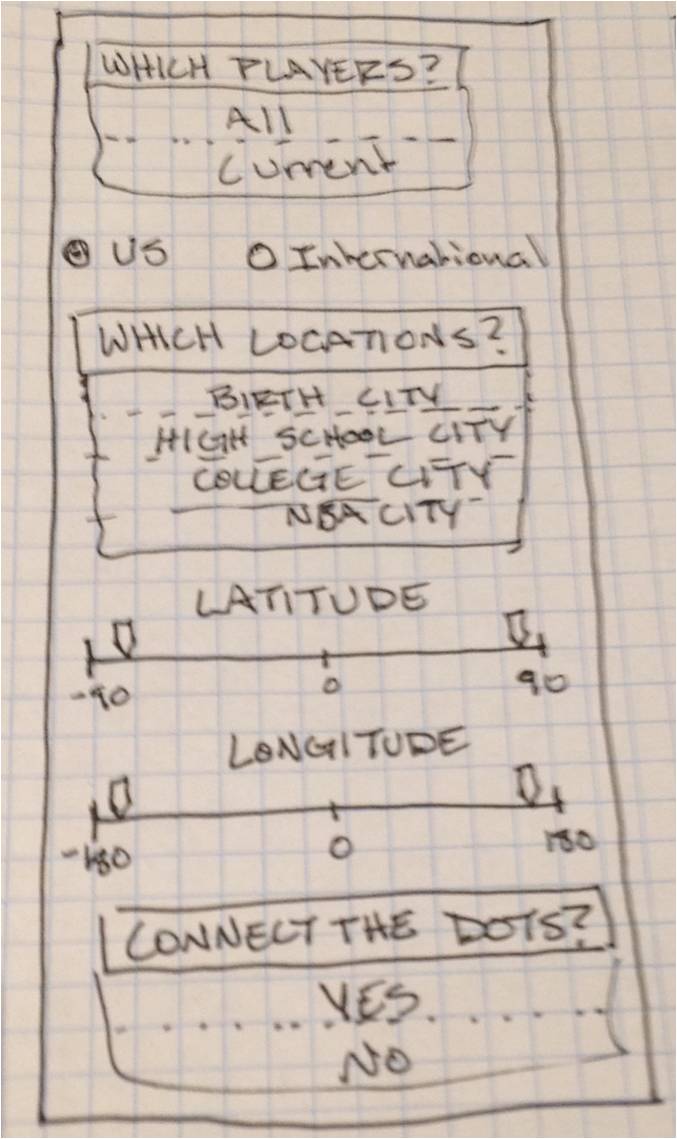 WHICH PLAYERS?
All
Current
US International
WHICH LOCATIONS?
BIRTH CITY
HIGH SCHOOL CITY
COLLEGE CITY
NBA CITY
LATITUDE
-90 0 90
LONGITUDE
-180 0 180
CONNECT THE DOTS?
YES
NO